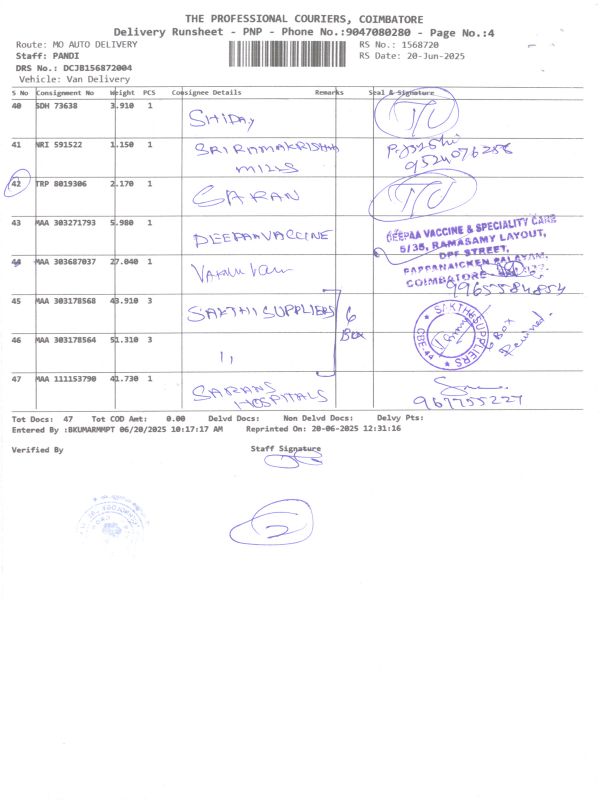 THE PROFESSIONAL COURIERS, COIMBATORE
Delivery Runsheet - PNP - Phone No.:9047080280 - Page No.:4
Route: MO AUTO DELIVERY RS No.: 1568720
Staff: PANDI RS Date: 20-Jun-2025
DRS No.: DCJB156872004
Vehicle: Van Delivery
S No Consignment No Weight PCS Consignee Details Remarks Seal & Signature
40 SDH 73638 3.910 1
SHIDAY
41 NRI 591522 1.150 1 SRI RAMAKRISHNA
MILLS
9524076256
42 TRP 8019306 2.170 1
SARAN
43 MAA 303271793 5.980 1 DEEPAA VACCINE
DEEPAA VACCINE & SPECIALITY CARE
5/35, RAMASAMY LAYOUT,
DPF STREET,
PAPPANAICKEN PALAYAM,
COIMBATORE
44 MAA 303687037 27.040 1
9965584854
45 MAA 303178568 43.910 3 SAKTHI SUPPLIERS 6
Box
SAKTHI SUPPLIERS
CBE-44
6 Box
Received
46 MAA 303178564 51.310 3
,,
47 MAA 111153790 41.730 1
SARANS
HOSPITALS
967755227
Tot Docs: 47 Tot COD Amt: 0.00 Delvd Docs: Non Delvd Docs: Delvy Pts:
Entered By :BKUMARMMPT 06/20/2025 10:17:17 AM Reprinted On: 20-06-2025 12:31:16
Verified By Staff Signature
2